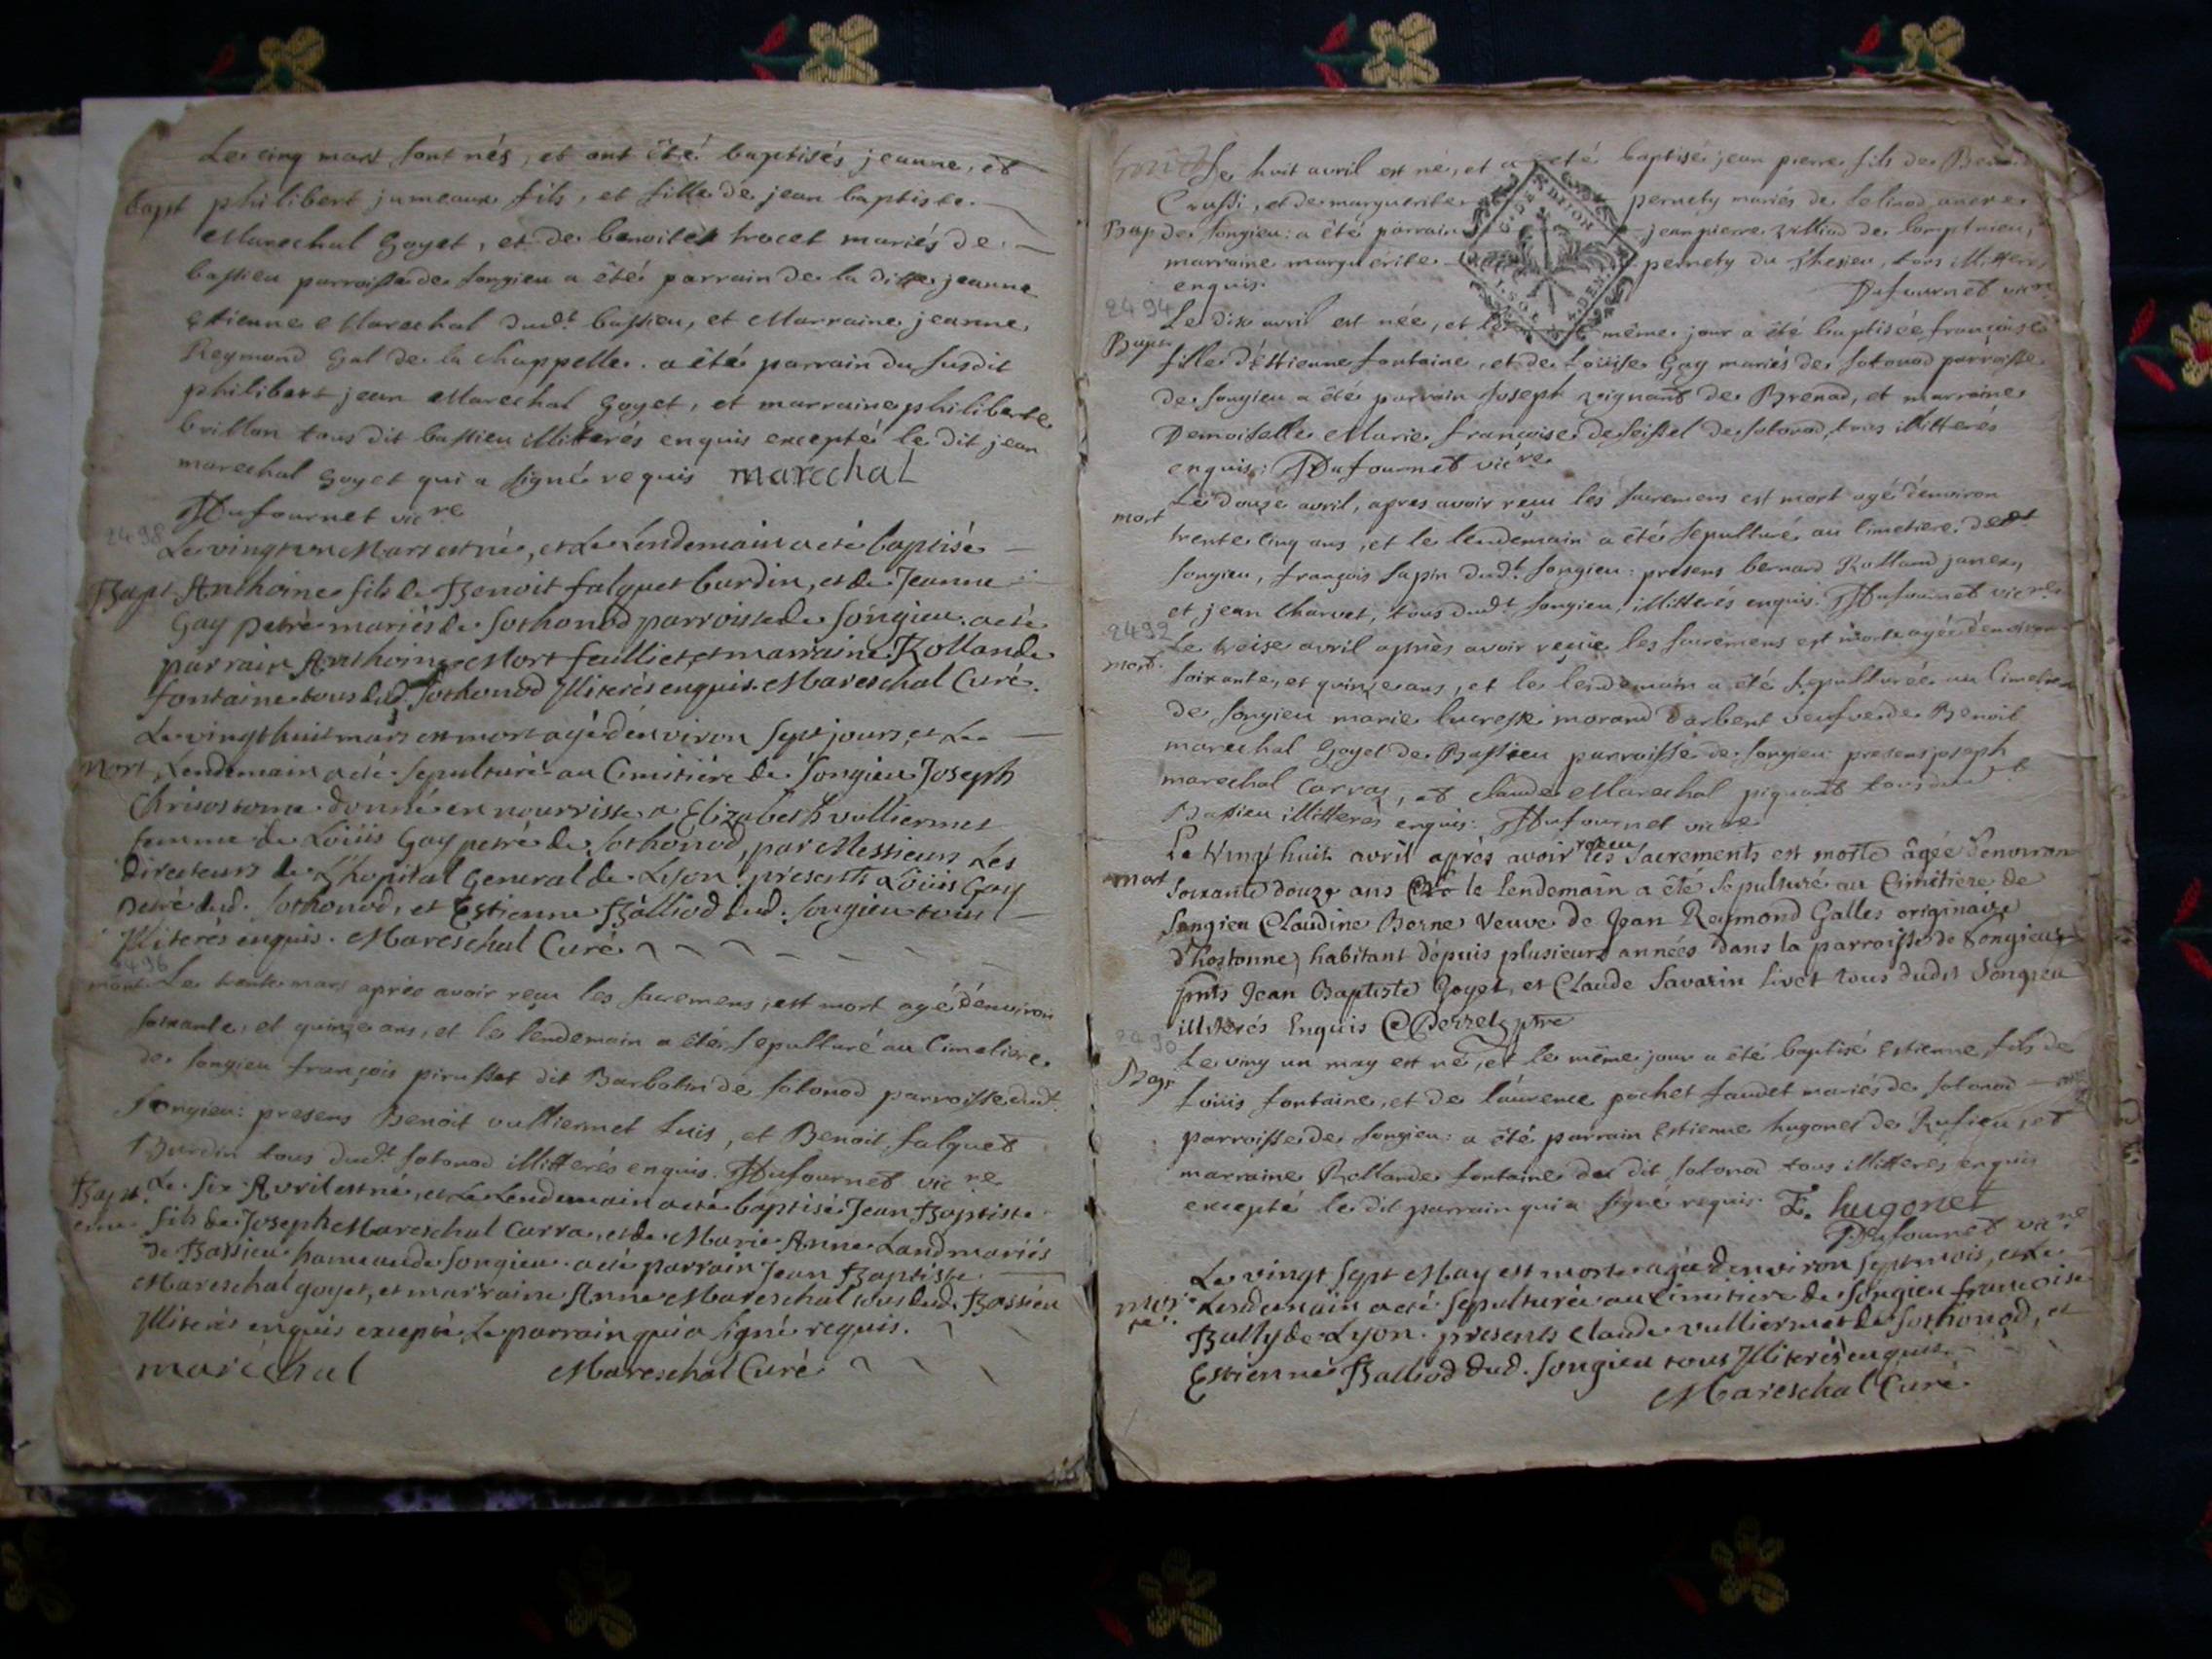 Le cinq mars sont nés, et ont été baptisés jeanne, et
bapt philibert jumeaux fils, et fille de jean baptiste
Marechal Goyet, et de benoite trocet mariés de
bassieu parroisse de songieu a été parrain de la ditte jeanne
Etienne Marechal dudt. bassieu, et Marraine jeanne
Reymond Gal de la Chappelle. a été parrain du susdit
philibert jean Marechal Goyet, et marraine philiberte
brillon tous dit bassieu illiterés enquis excepté le dit jean
marechal Goyet qui a signé requis marechal
Dufournet vicre
2498
Le vingt un Mars est né, et Le Lendemain a eté baptisé
Bapt. Anthoine fils de Benoit falquet burdin, et de Jeanne
Gay petré mariés de Sothonod parroisse de Songieu. a eté
parrain Anthoine Mort feulliet, et marraine Rollande
fontaine tous dud. Sothonod Illiterés enquis. Mareschal Curé.
Le vingt huit mars est mort agé d'environ sept jours, et Le
Mort Lendemain a eté sepulturé au Cimitiére de Songieu Joseph
Chrisostome donné en nourrisse a Elizabeth vulliermet
femme de Loüis Gay petré de Sothonod, par Messieurs Les
Directeurs de L'hopital General de Lyon. presents Loüis Gay
petré dud. Sothonod, et Estienne Balliod dud. Songieu tous
Illiterés enquis. Mareschal Curé
2496
mort Le trente mars après avoir reçu les sacremens, est mort agé d'environ
soixante, et quinze ans, et le lendemain a été sepulturé au Cimetiere
de songieu françois pirasset dit Barbatin de sotonod parroisse dudt.
songieu: presens Benoit vulliermet Luis, et Benoit falquet
Burdin tous dudt. sotonod illitterés enquis. Dufournet vicre
Bapt. Le six Avril est né, et Le Lendemain a eté baptisé Jean Baptiste
fils de Joseph Mareschal Carra, et de Marie Anne Land mariés
de Bassieu hameau de Songieu. a eté parrain Jean Baptiste
Mareschal goyet, et marraine Anne Mareschal tous dud. Bassieu
Illiterés enquis excepté Le parrain qui a signé requis.
maréchal Mareschal Curé
Le huit avril est né, et a été baptisé jean pierre fils de
Crussi, et de marguerite pernety mariés de
Bap de songieu: a été parrain jean pierre de Lompnieu,
marraine marguerite pernety du tous illitterés
enquis. Dufournet vicre
2494
Le dix avril est née, et le même jour a été baptisée françoise
Bapt fille d'éttienne fontaine, et de Loüise Gay mariés de sotonod parroisse
de songieu a été parrain joseph vignand de Brenad, et marraine
Demoiselle Marie françoise de seissel de sotonod, tous illitterés
enquis: Dufournet vicre
Le douze avril, apres avoir reçu les sacremens est mort agé d'environ
mort trente cinq ans, et le lendemain a été sepulturé au Cimetiere dudt
songieu, françois sapin dudt. songieu: presens bernard Rolland janex,
et jean Charvet, tous dudt. songieu: illitterés enquis. Dufournet vicre
2492
Le treise avril après avoir reçue les sacremens est morte agée d'environ
mort. soixante, et quinze ans, et le lendemain a été sepulturée au Cimetiere
de songieu marie lucresse morand d'arbent veufve de Benoit
marechal Goyet de Bassieu parroisse de songieu: presens joseph
marechal Carraz, et Claude Marechal pignant tous dudt
Bassieu illitterés enquis: Dufournet vicre
Le Vingt huit avril après avoir reçeu les Sacrements est morte âgée d'environ
mort soixante douze ans et le lendemain a été Sepulturé au Cimétiere de
Songieu Claudine Borne Veuve de Jean Reymond Galles originaire
d'hostonne, habitant dépuis plusieurs années dans la parroisse de Songieu
pnts Jean Baptiste Goyet, et Claude Savarin livet tous dudit Songieu
illiterés Enquis Perzel ptre
2490
Le ving un may est né, et le même jour a été baptisé Estienne fils de
Bap Loüis fontaine, et de laurence pochet faudet mariés de sotonod
parroisse de songieu: a été parrain Estienne hugonet de Rufieu, et
marraine Rollande fontaine du dit sotonod tous illitterés enquis
excepté le dit parrain qui a signé requis. E. hugonet
Dufournet vicre
Le vingt sept May est morte agée d'environ sept mois, et Le
Lendemain a eté sepulturée au Cimitiere de Songieu françoise
Bally de Lyon. presents Claude vulliermet de Sothonod, et
Estienne Balliod dud. Songieu tous Illiterés enquis.
Mareschal Curé.